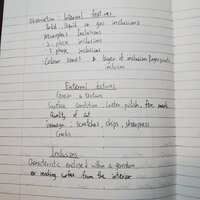 Observation : Internal features
Solid, liquid or gas inclusions
Amorphous Inclusions
2 phase inclusions
3 phase inclusions
Colour zones & layer of inclusion
inclusion
External features
Surface condition Luster, polish, fire mark
Quality of cut
Damage : scratches, chips, sharpness
Cracks
Inclusions
Characteristic enclosed within a gemstone
or reaching surface from the interior